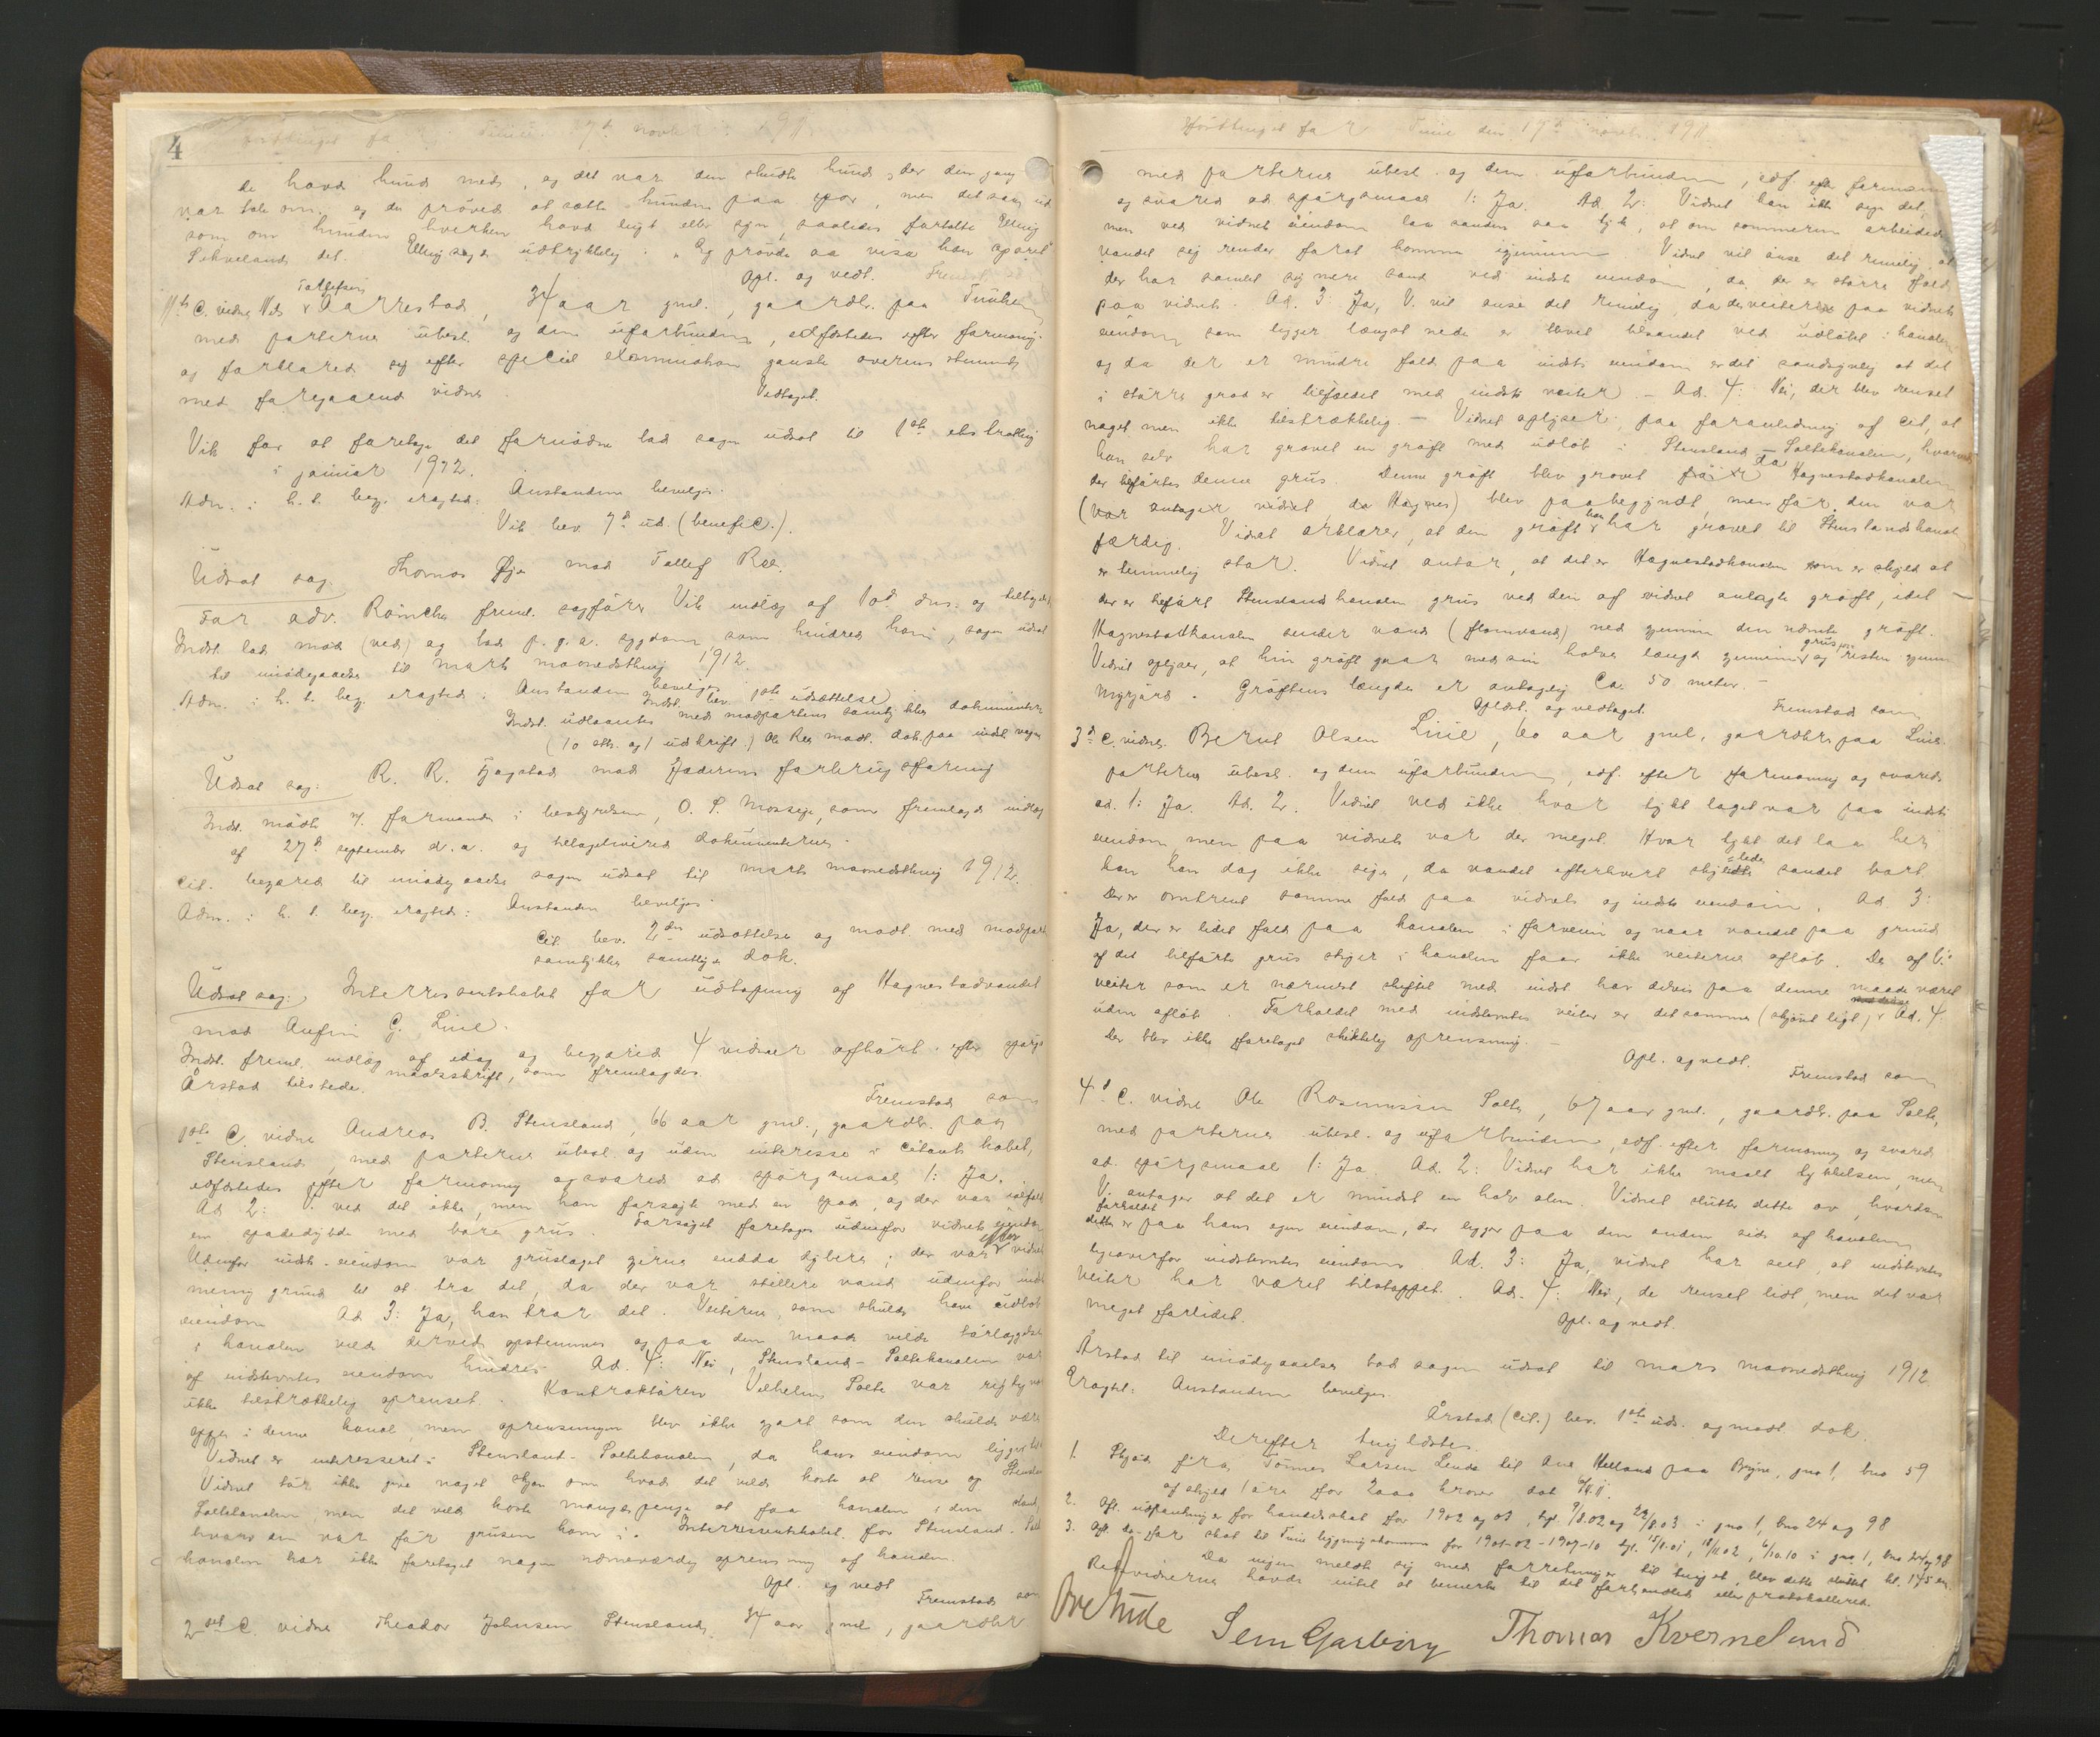 4
Time 17de novbr 1911
de havde hund med, og det var den skudte hund, der den gang
var tale om. og de prøved at sætte hunden paa spor, men det saa ud
som om hunden hverken havde lugt eller syn, saaledes fortalte Elling
Likveland det. Elling sagde udtrykkelig: "Eg prøvde aa visa han sporet"
Opl. og vedt. Fremst.
11te C. vidne Nils Tollefsen Aarrestad, 34 aar gml., gaardbr. paa Tunheim
med parterne ubesl. og dem uforbunden, edfæstedes efter formaning
og forklared sig efter speciel examination ganske overensstemmende
med foregaaende vidne. Vedtaget.
Vik for at foretage det fornødne bad sagen udsat til 1ste ekstrathing
i januar 1912.
Adm. i h. t. beg. eragted: Anstanden bevilges.
Vik bev. 7de ud. (benefic.).
Udsat sag: Thomas Øye mod Tollef Ree.
For adv. Röncke freml. sagfører Vik indlæg af 10de ds. og
Indst. lod møde (ved) og bad p. g. a. sygdom, som hindred ham, sagen udsat
til imødegaaelse til marts maanedsthing 1912.
Adm. i h. t. beg. eragted: Anstanden bevilges.
Indst. bev. 1ste udsættelse
Indst. udlaantes med modpartens samtykke dokumenterne
(10 stk. og 1 udskrift.) Ole Ree modt. dok. paa indst. vegne
Udsat sag: R. R. Fjogstad mod Jæderens forbrugsforening
Indst. mødte v. formanden i bestyrelsen, O. S. Mossige, som fremlagde indlæg
af 27de september d. a. og tilbageleverede dokumenterne.
Cit. begjæred til imødegaaelse sagen udsat til marts maanedsthing 1912.
Adm. i h. t. beg. eragted: Anstanden bevilges.
Cit. bev. 2den udsættelse og modt. med modpart.
samtykke samtlige dok.
Udsat sag: Interessentskabet for udtapning af Hagnestadvandet
mod Anfin G. Line.
Indst. freml. indlæg af idag og begjæred 4 vidner afhørt efter spørgs-
maalsskrift, som fremlagdes.
Årstad tilstede.
Fremstod som
1ste C. vidne Andreas B. Stensland, 66 aar gml., gaardbr. paa
Stensland, med parterne ubesl. og uden interesse i citantskabet,
edfæstedes efter formaning og svared ad spørgsmaal 1: Ja.
Ad 2: V. ved det ikke, men han forsøgte med en spade, og der var ialfald
en spadedybde med bare grus. Forsøget foretoges udenfor vidnets eiendom
Udenfor indst. eiendom var gruslaget gjerne endda dybere; der var efter vidnets
mening grund til at tro det, da der var stillere vand udenfor indst.
eiendom. Ad 3: Ja, han tror det. Veiterne, som skulde have udløb
i kanalen vilde derved opstemmes og paa den maade vilde tørlæggelse
af indstevntes eiendom hindres. Ad. 4: Nei, Stensland-Saltekanalen var
ikke tilstrækkelig oprenset. Kontraktøren Vilhelm Salte var rigtig nok
oppe i denne kanal, men oprensningen blev ikke gjort som den skulde være
Vidnet er interesseret i Stensland-Saltekanalen, da hans eiendom ligger til
Vidnet tør ikke give noget skjøn om hvad det vilde koste at rense op Stensland
Saltekanalen, men det vilde koste mange penge at faa kanalen i den stand,
hvori den var før grusen kom i. Interessentskabet for Stensland-Salte
kanalen har ikke foretaget nogen nævneværdig oprensning af kanalen.
Opl. og vedt. Fremstod som
2det C. vidne Theodor Johnsen Stensland 34 aar gml., gaardbr.
Høstthinget for Time den 17de novbr 1911
med parterne ubesl. og dem uforbunden, edf. efter formaning
og svared ad spørgsmaal 1: Ja. Ad. 2: Vidnet kan ikke sige det,
men ved vidnets eiendom laa sanden saa tyk, at om sommeren arbeidede
vandet sig render forat komme igjennem. Vidnet vil anse det rimelig at
der har samlet sig mere sand ved indst. eiendom, da der er større fald
paa vidnets. Ad. 3: Ja, V. vil anse det rimelig, da de veiter paa vidnets
eiendom, som ligger længst nede er blevet tilsandet ved udløbet i kanalen
og da der er mindre fald paa indst. eiendom er det sandsynlig at det
i større grad er tilfældet med indst. veiter. — Ad. 4: Nei, der blev renset
noget men ikke tilstrækkelig. — Vidnet oplyser paa foranledning af cit., at
han selv har gravet en grøft med udløb i Stensland-Saltekanalen, hvorved
der tilførtes denne grus. Denne grøft blev gravet da Hagnestadkanalen
(var antager vidnet, da Hognes) blev paabegyndt, men før den var
færdig. Vidnet erklærer, at den grøft han har gravet til Stenslandskanal
er temmelig stor. Vidnet antar, at det er Hagnestadkanalen som er skyld at
der er tilført Stenslandkanalen grus ved den af vidnet anlagte grøft, idet —
Hagnestadkanalen sender vand (flomvand) ned gjennem den nævnte grøft.
Vidnet oplyser, at hin grøft gaar ved sin halve længde gjennem grus og resten gjennem
myrjord. Grøftens længde er antagelig ca. 50 meter. —
Oplæst og vedtaget. Fremstod som
3de C. vidne Bernt Olsen Line, 60 aar gml., gaardbr. paa Line
parterne ubesl. og dem uforbunden, edf. efter formaning og svarede
ad. 1: Ja. Ad. 2. Vidnet ved ikke hvor tykt laget var paa indst.
eiendom, men paa vidnets var der meget. Hvor tykt det laa her
kan han dog ikke sige, da vandet efterhvert skyllede sandet bort.
Der er omtrent samme fald paa vidnets og indst. eiendom. Ad. 3:
Ja, der er lidet fald paa kanalen i forveien og naar vandet paa grund
af det tilførte grus stiger i kanalen faar ikke veiterne afløb. De af V.'s
veiter som er nærmest skiftet med indst. har delvis paa denne maade været
uden afløb. Forholdet med indstevntes veiter er det samme (skjønt ligt). Ad. 4.
Der blev ikke foretaget skikkelig oprensning. —
Opl. og vedt. Fremstod som
4de C. vidne Ole Rasmussen Salte, 67 aar gml., gaardbr. paa Salte,
med parterne ubesl. og uforbunden, edf. efter formaning og svarede
ad. spørgsmaal 1: Ja. Ad. 2: Vidnet har ikke maalt tykkelsen, men
V. antager at det er mindst en halv alen. Vidnet slutter dette av, hvordan
forholdet er paa hans egen eiendom, der ligger paa den anden side af kanalen
ligeoverfor indstevntes eiendom. Ad. 3: Ja, vidnet har seet, at indstevntes
veiter har været tilstoppet. Ad. 4: Nei, de renset lidt, men det var
meget forlidet. Opl. og vedt.
Årstad til imødegaaelse bad sagen udsat til mars maanedsthing 1912.
Eragtet: Anstanden bevilges.
Årstad (cit.) bev. 1ste uds. og modt. dok.
Derefter thinglæstes.
1. Skjøde fra Tønnes Larsen Lende til Ane Helland paa Bryne, gno 1, bno 59
af skyld 1 øre for 2000 kroner dat 6/11.11.
2. Afl. udpantninger for handelsskat for 1902 og 03, tgl. 9/8.02 og 22/8.03 i gno 1, bno 24 og 98
3. Afl. do for skat til Time bygningskommune for 1901-02-1909-10 tgl. 15/11.01, 18/11.02, 6/10.10 i gno 1, bno 24 og 98
Da ingen meldte sig med forretninger til thinget, blev dette sluttet kl. 145 em.
Retsvidnerne havde intet at bemerke til det forhandlede eller protokollerede.
Sem Garborg Thomas Kverneland